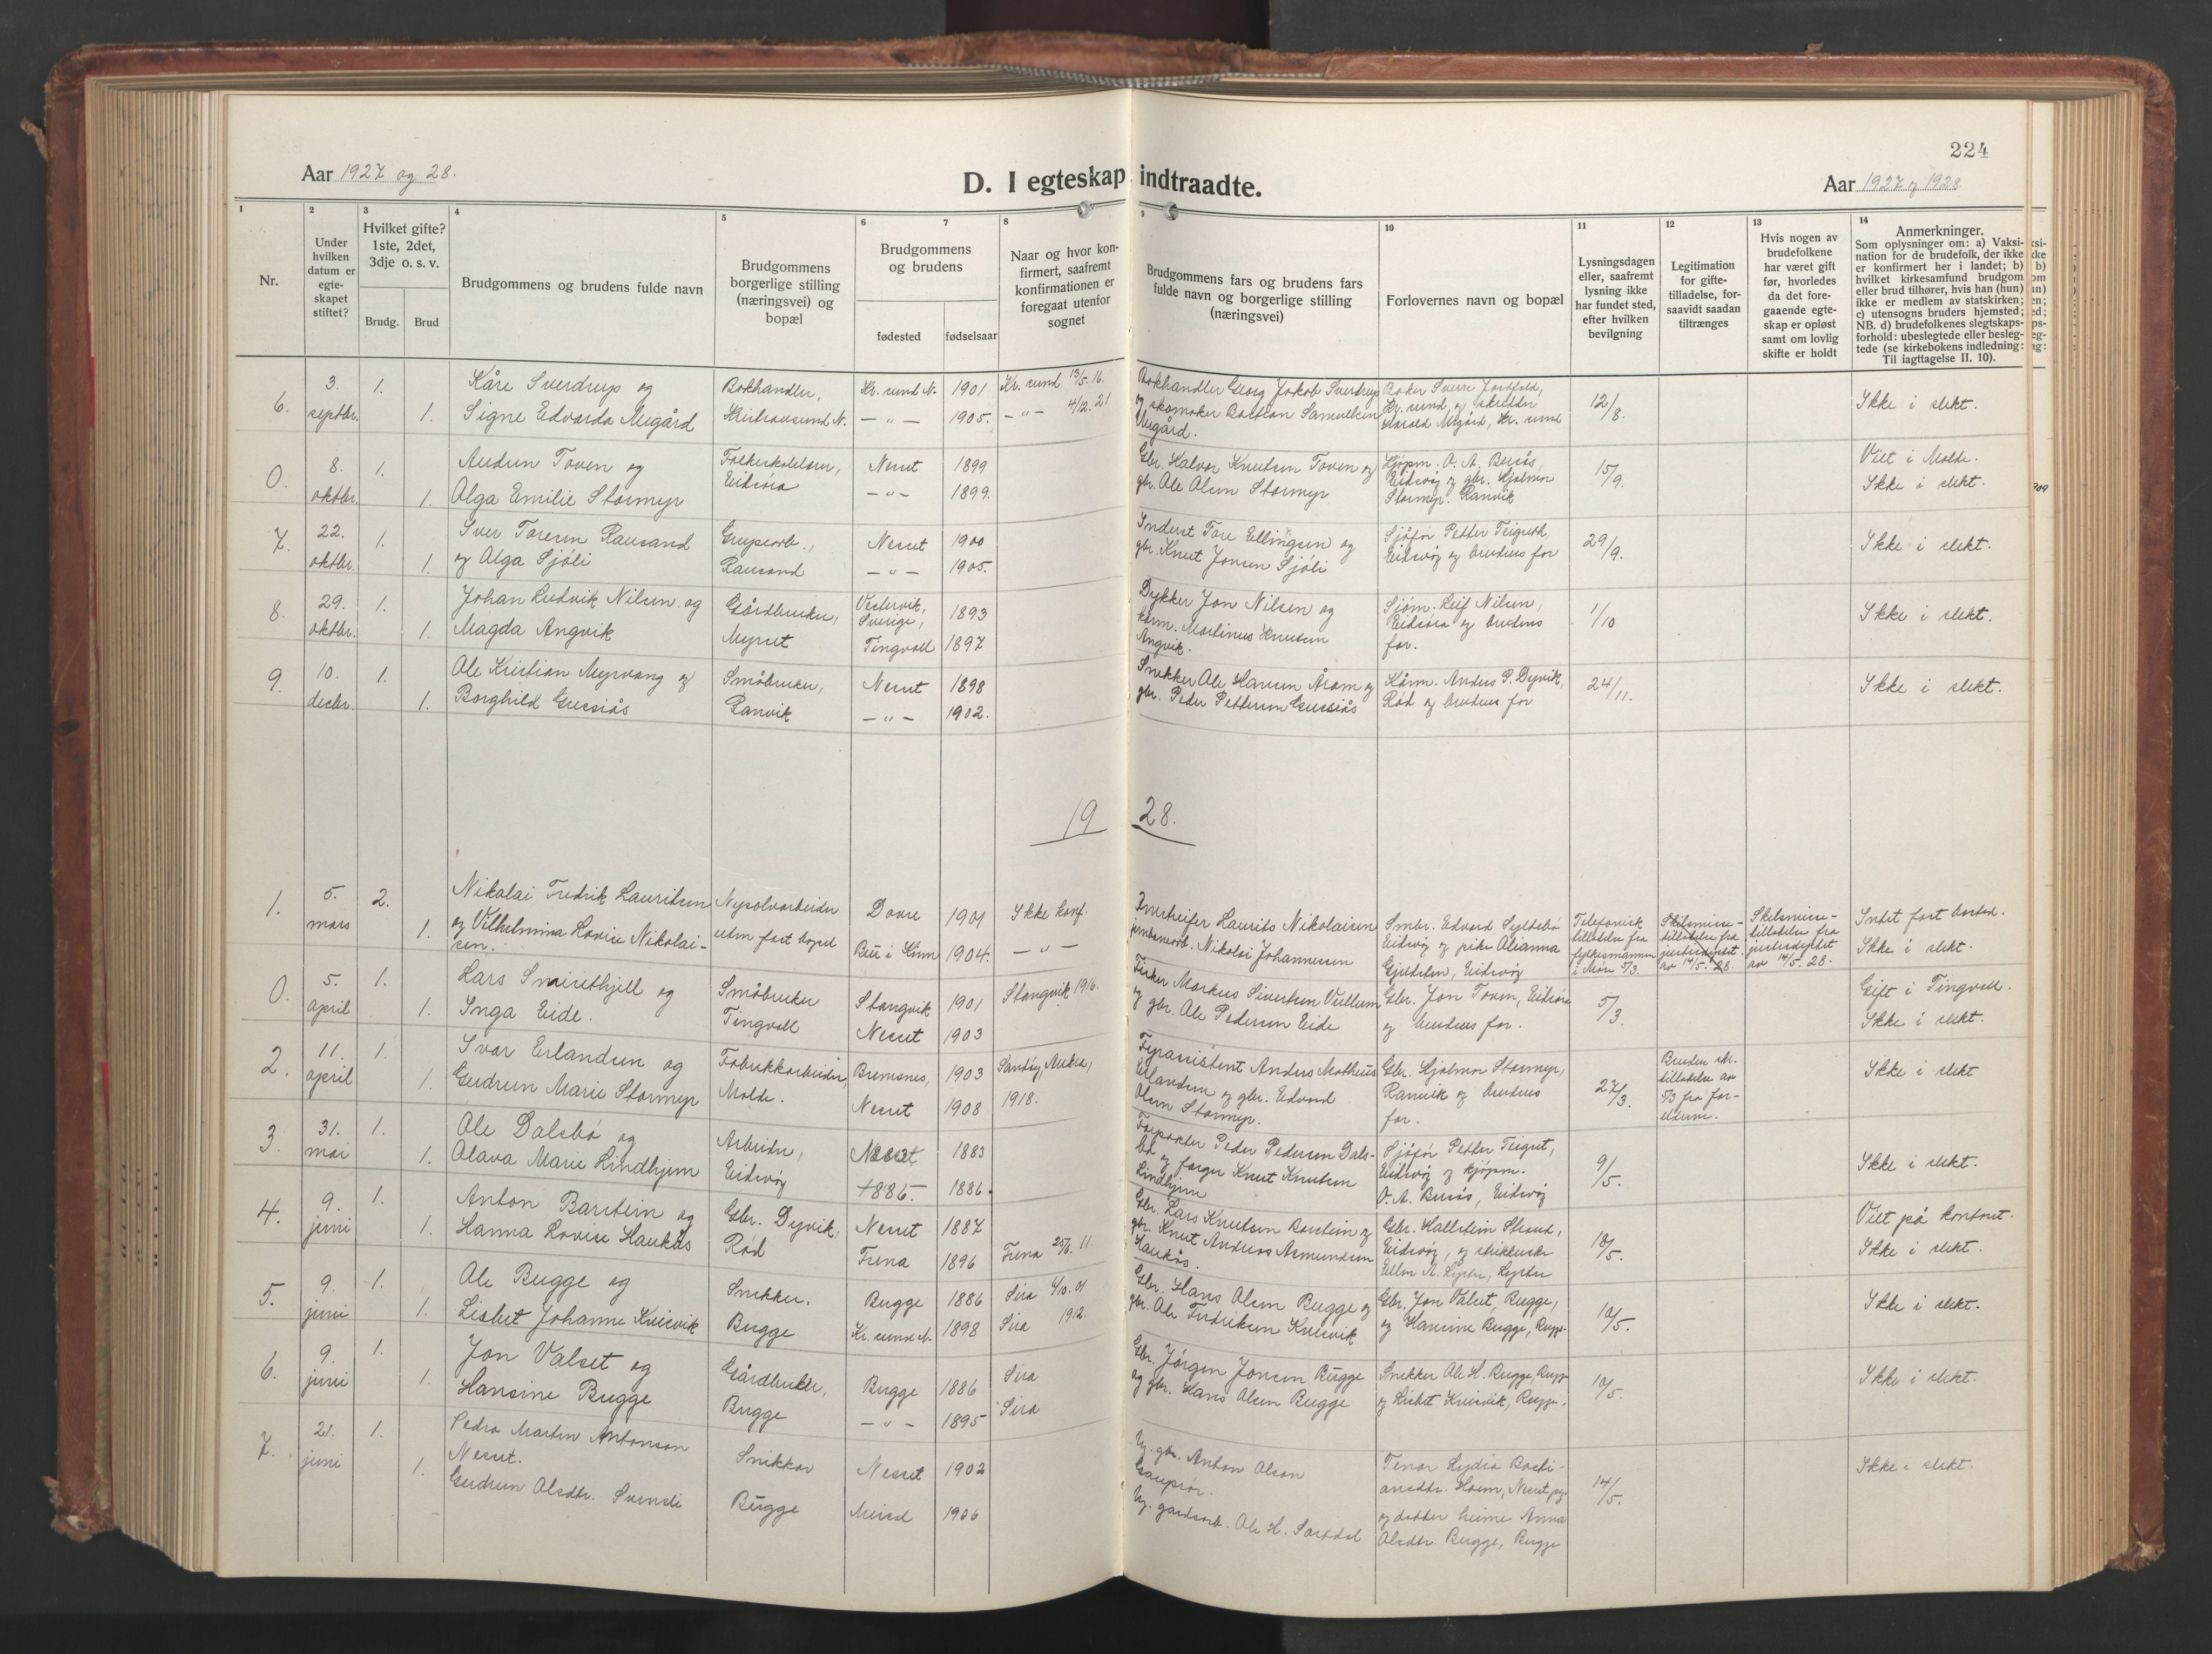 224
Aar 1927 og 28.
D. I egteskap indtraadte.
Aar 1927 og 1928
1
2
3
4
5
6
7
8
9
10
11
12
13
14
Nr.
Under hvilken datum er egte-skapet stiftet?
Hvilket gifte? 1ste, 2det, 3dje o. s. v.
Brudg.
Brud
Brudgommens og brudens fulde navn
Brudgommens borgerlige stilling (næringsvei) og bopæl
Brudgommens og brudens
fødested
fødselsaar
Naar og hvor kon-firmert, saafremt konfirmationen er foregaat utenfor sognet
Brudgommens fars og brudens fars fulde navn og borgerlige stilling (næringsvei)
Forlovernes navn og bopæl
Lysningsdagen eller, saafremt lysning ikke har fundet sted, efter hvilken bevilgning
Legitimation for gifte-tilladelse, for-saavidt saadan tiltrænges
Hvis nogen av brudefolkene har været gift før, hvorledes da det fore-gaaende egte-skap er opløst samt om lovlig skifte er holdt
Anmerkninger.
Som oplysninger om: a) Vaksi-nation for de brudefolk, der ikke er konfirmert her i landet; b) hvilket kirkesamfund brudgom eller brud tilhører, hvis han (hun) ikke er medlem av statskirken; c) utensogns bruders hjemsted; NB. d) brudefolkenes slegtskaps-forhold: ubeslegtede eller besleg-tede (se kirkebokens indledning: Til iagttagelse II. 10).
6. 3. septbr. 1. 1.
Kåre Sverdrup og
Signe Edvarda Nugård
Bokhandler,
Kristiansund N.
Kr. sund N. 1901
— " — 1905.
Kr. sund 13/5. 16.
— " — 4/12. 21
Bokhandler Georg Jakob Sverdrup
og skomaker Bastian Samuelsen
Nugård.
Baker Sverre Jordfald,
Kr. sund, og skredder
Harald Nugård, Kr. sund
12/8.
Ikke i slekt.
0. 8. oktbr. 1. 1.
Audun Toven og
Olga Emilie Stormyr
Folkeskolelærer,
Eidsøra
Nesset 1899
— " — 1899.
Gbr. Halvor Knutsen Toven og
gbr. Ole Olsen Stormyr
Kjøpm. O. A. Busås,
Eidsvåg og gbr. Hjalmar
Stormyr. Ranvik
15/9.
Viet i Molde.
Ikke i slekt.
7. 22. oktbr. 1. 1.
Iver Toresen Rausand
og Olga Sjøli
Grupearb.,
Rausand
Nesset 1900
— " — 1905.
Inderst Tore Ellingsen og
gbr. Knut Jonsen Sjøli
Sjåfør Petter Teigset,
Eidsvåg og brudens far
29/9.
Ikke i slekt.
8. 29. oktbr. 1. 1.
Johan Ludvik Nilsen og
Magda Angvik
Gårdbruker,
Myrset
Vestervik,
Sverige, 1893
Tingvoll 1897
Dykker Jon Nilsen og
kårm. Martinus Knutsen
Angvik.
Sjøm. Leif Nilsen,
Eidsøra og brudens
far.
1/10
Ikke i slekt.
9. 10. decbr. 1. 1.
Ole Kristian Myrvang og
Borghild Gussiås
Småbruker,
Ranvik
Nesset 1898
— " — 1902.
Snekker Ole Hansen Åram og
gbr. Peder Pettersen Gussiås
Kårm. Anders P. Dyvik,
Rød og brudens far
24/11.
Ikke i slekt.
19 28.
1. 5. mars 2. 1.
Nikolai Fredrik Lauritsen
og Vilhelmina Lovise Nikolai-
sen.
Nysølvarbeider
uten fast bopel
Dovre 1901
Bui i Kinn 1904.
Ikke konf.
— " —
Laurits Nikolaisen
Nikolai Johannessen
Smbr. Edvard Syltebø
Eidsvåg og pike Olianna
Gjeldsten, Eidsvåg
Telefonisk
tillatelse fra
fylkesmannen
i Møre 5/3.
Skilsmisse-
tillatelse fra
justisdepart.
av 14/5. 28.
Skilsmisse-
tillatelse fra
justisdeptet
av 14/5. 28.
Intet fast bosted.
Ikke i slekt.
0. 5. april 1. 1.
Lars Smisethjell og
Inga Eide.
Småbruker
Tingvoll
Stangvik 1901
Nesset 1903
Stangvik 1916.
Fisker Markus Sivertsen Vullum
og gbr. Ole Pedersen Eide
Gbr. Jon Toven, Eidsøra
og brudens far.
5/3.
Gift i Tingvoll.
Ikke i slekt.
2. 11. april 1. 1.
Ivar Erlandsen og
Gudrun Marie Stormyr
Fabrikkarbeider,
Molde.
Bremsnes, 1903
Nesset 1908
Sandøy, Aukra,
1918.
Fyrassistent Anders Matheus
Erlandsen og gbr. Edvard
Olsen Stormyr.
Gbr. Hjalmar Stormyr,
Ranvik og brudens
far.
27/3.
Bruden skr.
tillatelse av
5/3 fra for-
eldrene.
Ikke i slekt
3. 31. mai 1. 1.
Ole Dalsbø og
Olava Marie Lindhjem
Arbeider,
Eidsvåg
Nesset 1883
1886. 1886.
Forpakter Peder Pedersen Dals-
bø og farger Knut Knutsen
Lindhjem
Sjåfør Petter Teigset,
Eidsvåg og kjøpm.
O. A. Busås, Eidsvåg
9/5.
Ikke i slekt.
4. 9. juni 1. 1.
Anton Barstein og
Hanna Lovise Haukås
Gbr. Dyvik,
Rød
Nesset 1887
Fræna 1896
Fræna 25/6. 11.
Gbr. Lars Knutsen Barstein og
gbr. Knut Andreas Asmundsen
Haukås.
Gbr. Hallstein Strand,
Eidsvåg, og
Ellen A. Lyster, Lyster
18/5.
Viet på kontoret.
Ikke i slekt.
5. 9. juni 1. 1.
Ole Bugge og
Lisbet Johanne Kvisvik
Snekker.
Bugge
Bugge 1886
Kr. sund N. 1898
Sira 6/10. 01
Sira 1912.
Gbr. Hans Olsen Bugge og
gbr. Ole Fredriksen Kvisvik
Gbr. Jon Valset, Bugge,
og Hansine Bugge, Bugge.
10/5.
Ikke i slekt.
6. 9. juni 1. 1.
Jon Valset og
Hansine Bugge
Gårdbruker,
Bugge
Bugge 1886
— " — 1895
Sira
Sira
Gbr. Jørgen Jonsen Bugge
og gbr. Hans Olsen Bugge
Snekker Ole H. Bugge, Bugge
og Lisbet Kvisvik, Bugge.
10/5.
Ikke i slekt.
7. 21. juni 1. 1.
Pedra Martin Antonson
Nesset.
Gudrun Olsdtr. Svensli
Snikkar
Bugge
Nesset 1902
1906
Ug. gbr. Anton Olson
Gauprør.
Ug. gardarb. Ole H. Sartdal
Tenar Lydia Basti-
ansdtr. Hoem, Nesset pg.
og dotter heime Anna
Olsdtr. Bugge, Bugge
14/5.
Ikke i slekt.